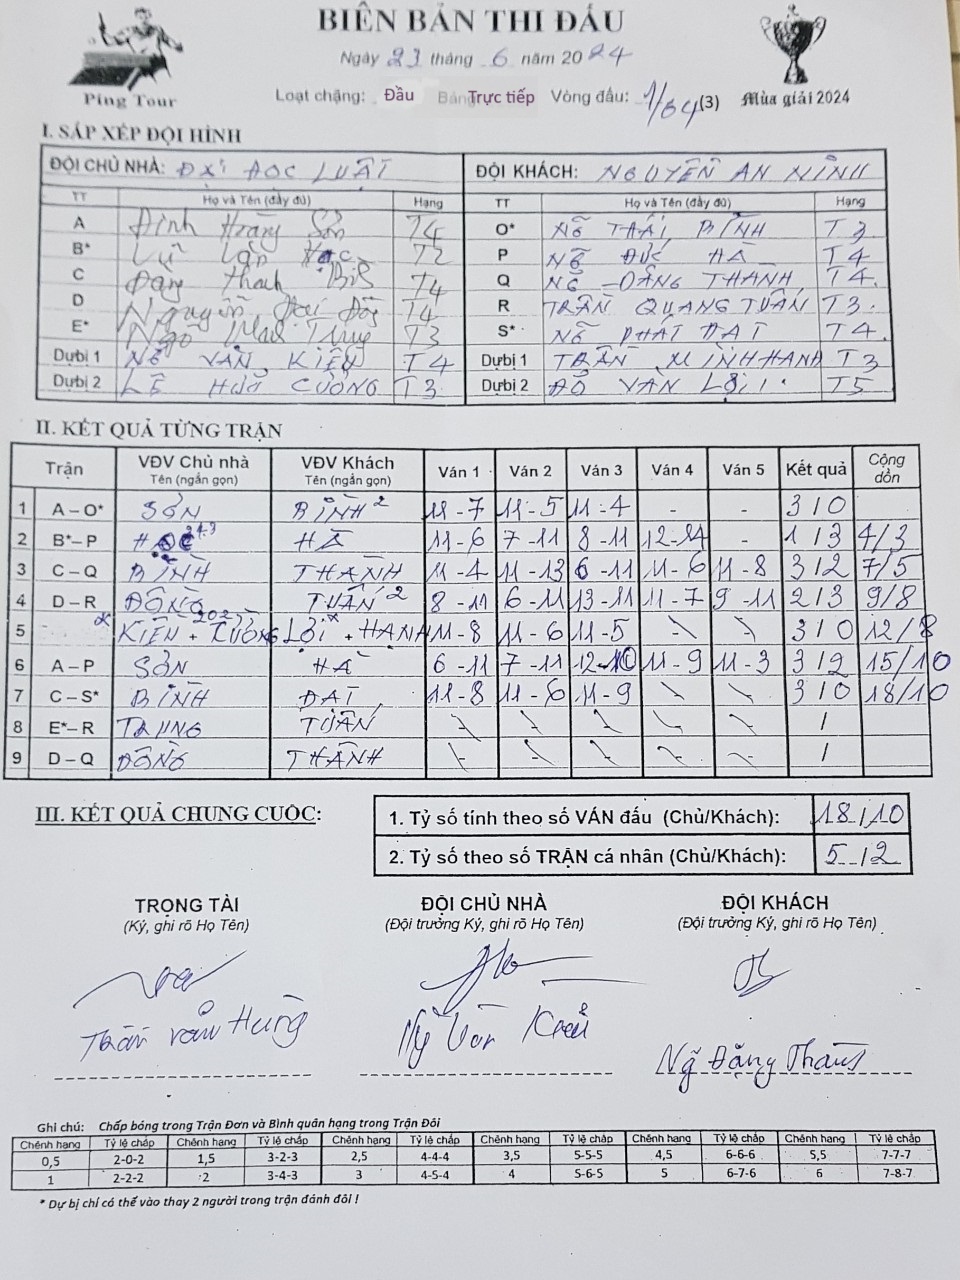 BIÊN BẢN THI ĐẤU
Ngày 23 tháng 6 năm 2024
Ping Tour
Loạt chặng: Đầu Bảng Trực tiếp Vòng đấu: 1/64(3) Mùa giải 2024
I. SẮP XẾP ĐỘI HÌNH
ĐỘI CHỦ NHÀ: ĐẠI HỌC LUẬT ĐỘI KHÁCH: NGUYỄN AN NINH
TT Họ và Tên (đầy đủ) Hạng TT Họ và Tên (đầy đủ) Hạng
A Đinh Hoàng Sơn T4 O* NG THÁI BÌNH T3
B* Lữ Văn Học T2 P NG ĐỨC HÀ T4
C Đặng Thanh Bình T4 Q NG ĐĂNG THÀNH T4
D Nguyễn Đồng T4 R TRẦN QUANG TUẤN T3
E* Ngô T3 S* NG PHÁT ĐẠT T4
Dự bị 1 NG VĂN KIÊN T4 Dự bị 1 TRẦN MINH HẠNH T3
Dự bị 2 LÊ HỮU CƯỜNG T3 Dự bị 2 ĐỖ VĂN LỢI T5
II. KẾT QUẢ TỪNG TRẬN
Trận VĐV Chủ nhà Tên (ngắn gọn) VĐV Khách Tên (ngắn gọn) Ván 1 Ván 2 Ván 3 Ván 4 Ván 5 Kết quả Cộng dồn
1 A – O* SƠN BÌNH 2 11-7 11-5 11-4 - - 3/0
2 B* – P HỌC 343 HÀ 11-6 7-11 8-11 12-14 - 1/3 4/3
3 C – Q BÌNH THÀNH 11-4 11-13 6-11 11-6 11-8 3/2 7/5
4 D – R ĐỒNG TUẤN 2 8-11 6-11 13-11 11-7 9-11 2/3 9/8
5 KIÊN + CƯỜNG 202 LỢI* + HẠNH 11-8 11-6 11-5 - - 3/0 12/8
6 A – P SƠN HÀ 6-11 7-11 12-10 11-9 11-3 3/2 15/10
7 C – S* BÌNH ĐẠT 11-8 11-6 11-9 - - 3/0 18/10
8 E* – R TRUNG TUẤN - - - - - /
9 D – Q ĐỒNG THÀNH - - - - - /
III. KẾT QUẢ CHUNG CUỘC:
1. Tỷ số tính theo số VÁN đấu (Chủ/Khách): 18/10
2. Tỷ số theo số TRẬN cá nhân (Chủ/Khách): 5/2
TRỌNG TÀI ĐỘI CHỦ NHÀ ĐỘI KHÁCH
(Ký, ghi rõ Họ Tên) (Đội trưởng Ký, ghi rõ Họ Tên) (Đội trưởng Ký, ghi rõ Họ Tên)
Trần Văn Hùng Ng Văn Kiên Ng Đăng Thành
Ghi chú: Chấp bóng trong Trận Đơn và Bình quân hạng trong Trận Đôi
Chênh hạng Tỷ lệ chấp Chênh hạng Tỷ lệ chấp Chênh hạng Tỷ lệ chấp Chênh hạng Tỷ lệ chấp Chênh hạng Tỷ lệ chấp Chênh hạng Tỷ lệ chấp
0,5 2-0-2 1,5 3-2-3 2,5 4-4-4 3,5 5-5-5 4,5 6-6-6 5,5 7-7-7
1 2-2-2 2 3-4-3 3 4-5-4 4 5-6-5 5 6-7-6 6 7-8-7
* Dự bị chỉ có thể vào thay 2 người trong trận đánh đôi !